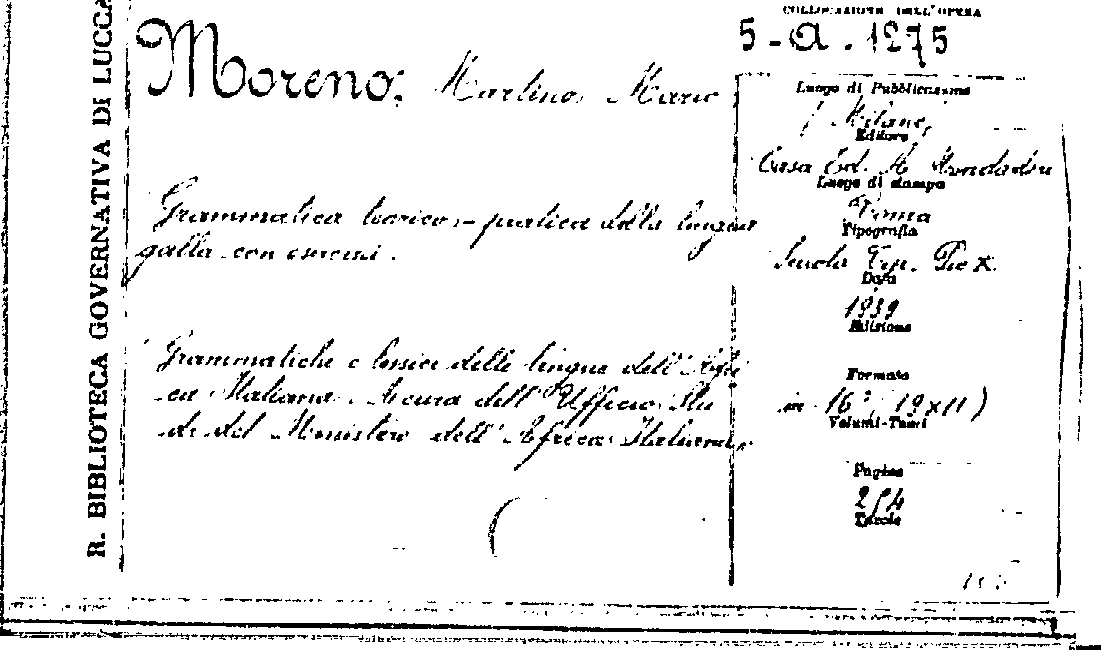 R. BIBLIOTECA GOVERNATIVA DI LUCCA
COLLOCAZIONE DELL'OPERA
5-a.1275
Moreno, Martino Mario
Grammatica teorico-pratica della lingua
galla con esercizi.
Grammatiche e lessici delle lingue dell'Afri
ca Italiana. A cura dell'Ufficio Stu
di del Ministero dell'Africa Italiana
Luogo di Pubblicazione
Milano,
Editore
Casa Ed. A. Mondadori
Luogo di stampa
Roma
Tipografia
Scuola Tip. Pio X.
Data
1939
Edizione
Formato
in 16° (19x11)
Volumi-Tomi
Pagine
254
Tavole